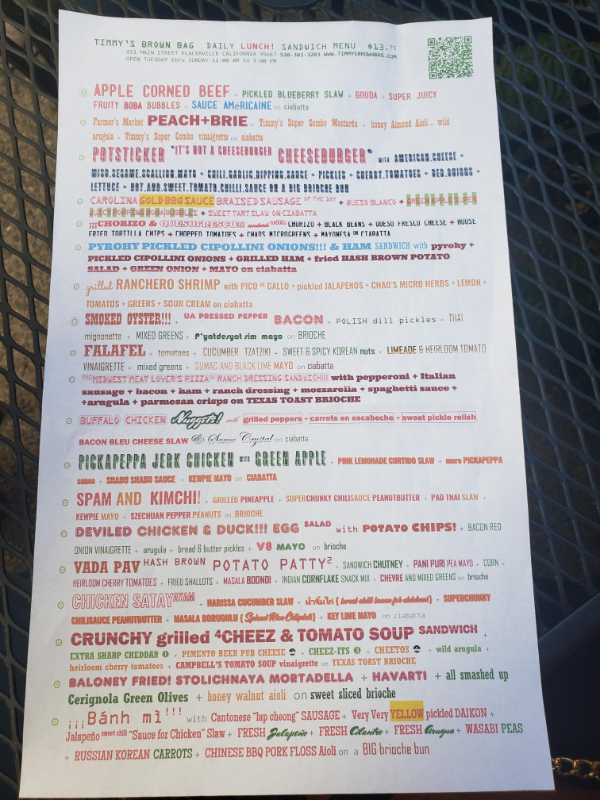 TIMMY'S BROWN BAG DAILY LUNCH! SANDWICH MENU $13.75
451 MAIN STREET PLACERVILLE CALIFORNIA 95667 530-303-3203 WWW.TIMMYSBROWNBAG.COM
OPEN TUESDAY thru SUNDAY 11:00 AM to 3:00 PM
APPLE CORNED BEEF + PICKLED BLUEBERRY SLAW + GOUDA + SUPER JUICY
FRUITY BOBA BUBBLES + SAUCE AMéRICAINE on ciabatta
Farmer's Market PEACH+BRIE + Timmy's Super Combo Mustards + honey Almond Aioli + wild
arugula + Timmy's Super Combo vinaigrette on ciabatta
POTSTICKER "IT'S NOT A CHEESEBURGER CHEESEBURGER" WITH AMERICAN.CHEESE +
MISO.SESAME.SCALLION.MAYO + CHILI.GARLIC.DIPPING.SAUCE + PICKLES + CHERRY.TOMATOES + RED.ONIONS +
LETTUCE + HOT.AND.SWEET.TOMATO.CHILLI.SAUCE ON A BIG BRIOCHE BUN
CAROLINA GOLD BBQ SAUCE BRAISED SAUSAGE OF THE DAY + QUESO BLANCO + GREEN APPLE SUPER
JUICY POPPING BOBA BUBBLES + SWEET TART SLAW ON CIABATTA
¡¡¡CHORIZO & QUESO FRESCO!!! CHORIZO + BLACK BEANS + QUESO FRESCO CHEESE + HOUSE
FRIED TORTILLA CHIPS + CHOPPED TOMATOES + CHADS MICROGREENS + MAYONESA ON CIABATTA
PYROHY PICKLED CIPOLLINI ONIONS!!! & HAM SANDWICH with pyrohy +
PICKLED CIPOLLINI ONIONS + GRILLED HAM + fried HASH BROWN POTATO
SALAD + GREEN ONION + MAYO on ciabatta
grilled RANCHERO SHRIMP with PICO DE GALLO + pickled JALAPENOS + CHAD'S MICRO HERBS + LEMON +
TOMATOES + GREENS + SOUR CREAM on ciabatta
SMOKED OYSTER!!! + UA PRESSED PEPPER BACON + POLISH dill pickles + THAI
mignonette + MIXED GREENS + mayo on BRIOCHE
FALAFEL + tomatoes + CUCUMBER TZATZIKI + SWEET & SPICY KOREAN nuts + LIMEADE & HEIRLOOM TOMATO
VINAIGRETTE + mixed greens + SUMAC AND BLACK LIME MAYO on ciabatta
"MIDWEST MEAT LOVER'S PIZZA" RANCH DRESSING SANDWICH!!! with pepperoni + Italian
sausage + bacon + ham + ranch dressing + mozzarella + spaghetti sauce +
+arugula + parmesan crisps on TEXAS TOAST BRIOCHE
BUFFALO CHICKEN Nuggets! with grilled peppers + carrots en escabeche + sweet pickle relish
BACON BLEU CHEESE SLAW & Sauce Crystal on ciabatta
PICKAPEPPA JERK CHICKEN WITH GREEN APPLE + PINK LEMONADE CURTIDO SLAW + more PICKAPEPPA
sauce + SHABU SHABU SAUCE + KEWPIE MAYO on CIABATTA
SPAM AND KIMCHI! + GRILLED PINEAPPLE + SUPERCHUNKY CHILISAUCE PEANUTBUTTER + PAD THAI SLAW +
KEWPIE MAYO + SZECHUAN PEPPER PEANUTS on BRIOCHE
DEVILED CHICKEN & DUCK!!! EGG SALAD with POTATO CHIPS! + BACON RED
ONION VINAIGRETTE + arugula + bread & butter pickles + V8 MAYO on brioche
VADA PAV HASH BROWN POTATO PATTY² + SANDWICH CHUTNEY + PANI PURI PEA MAYO + CORN +
HEIRLOOM CHERRY TOMATOES + FRIED SHALLOTS + MASALA BOONDI + INDIAN CORNFLAKE SNACK MIX + CHEVRE AND MIXED GREENS on brioche
CHICKEN SATAY + HARISSA CUCUMBER SLAW + น้ำจิ้มไก่ ( sweet chili sauce for chicken! ) + SUPERCHUNKY
CHILISAUCE PEANUTBUTTER + MASALA BORUGULU ( Spiced Rice Crispies! ) + KEY LIME MAYO on ciabatta
CRUNCHY grilled ⁴CHEEZ & TOMATO SOUP SANDWICH +
EXTRA SHARP CHEDDAR + PIMENTO BEER PUB CHEESE + CHEEZ-ITS + CHEETOS + wild arugula +
heirloom cherry tomatoes + CAMPBELL'S TOMATO SOUP vinaigrette on TEXAS TOAST BRIOCHE
BALONEY FRIED! STOLICHNAYA MORTADELLA + HAVARTI + all smashed up
Cerignola Green Olives + honey walnut aioli on sweet sliced brioche
¡¡¡Bánh mì!!! with Cantonese "lap cheong" SAUSAGE + Very Very YELLOW pickled DAIKON +
Jalapeño sweet chili "Sauce for Chicken" Slaw + FRESH Jalapeño + FRESH Cilantro + FRESH Arugua + WASABI PEAS
+ RUSSIAN KOREAN CARROTS + CHINESE BBQ PORK FLOSS Aioli on a BIG brioche bun